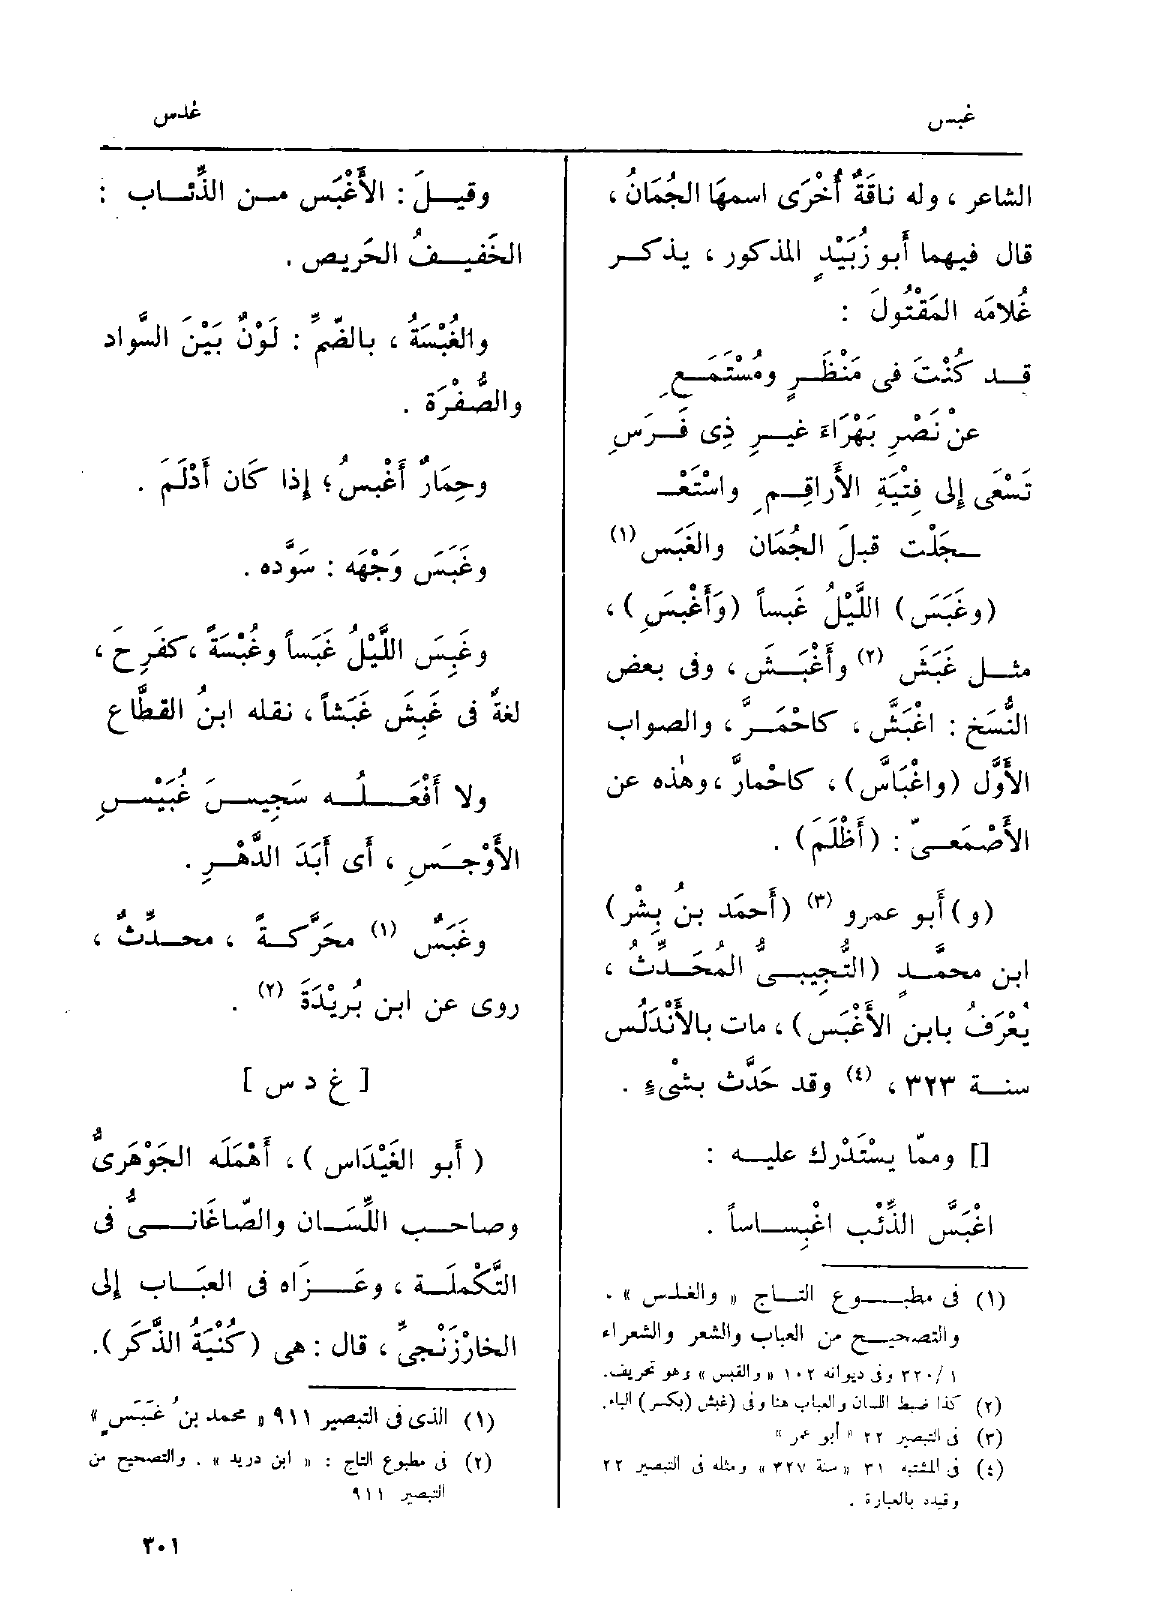 غبس
غدس
الشاعر ، وله ناقَةٌ أُخْرَى اسمهَا الجُمَانُ ،
قال فيهما أَبو زُبَيْدٍ المذكور ، يذكر
غُلامَه المَقْتُولَ :
قد كُنْتَ فى مَنْظَرٍ ومُسْتَمَعٍ
عنْ نَصْرِ بَهْرَاءَ غيرِ ذِى فَرَسِ
تَسْعَى إِلى فِتْيَةِ الأَراقِمِ واسْتَعْـ
ـجَلْت قبلَ الجُمَان والغَبَسِ (١)
(وغَبَسَ) اللَّيْلُ غَبساً (وَأَغْبَسَ) ،
مثل غَبَشَ (٢) وأَغْبَشَ ، وفى بعض
النُّسَخ : اغْبَشَّ ، كاحْمَرَّ ، والصواب
الأَوَّل (واغْبَاسَّ) ، كاحْمارَّ ، وهٰذه عن
الأَصْمَعىّ : (أَظْلَمَ) .
(و) أَبو عمرو (٣) (أَحمَد بنُ بِشْر)
ابن محمَّدٍ (التُّجِيبىُّ المُحَدِّثُ ،
يُعْرَفُ بابن الأَغْبَس) ، مات بالأَنْدَلُس
سنة ٣٢٣ ، (٤) وقد حَدَّث بشْىءٍ .
[] وممّا يسْتَدْرك عليه :
اغْبَسَّ الذِّئْب اغْبِساساً .
(١) فى مطبوع التاج « والغلس » .
والتصحيح من العباب والشعر والشعراء
١/ ٣٢٠ وفى ديوانه ١٠٢ « والقبس » وهو تحريف.
(٢) كذا ضبط اللسان والعباب هنا وفى (غبش (بكسر) الباء.
(٣) فى التبصير ٢٢ « أبو عمر »
(٤) فى المشتبه ٣١ « سنة ٣٢٧ » ومثله فى التبصير ٢٢
وقيده بالعبارة .
وقيلَ : الأَغْبَس من الذِّئاب :
الخَفيفُ الحَريص .
والغُبْسَةُ ، بالضّمِّ : لَوْنٌ بَيْنَ السَّواد
والصُّفْرَة .
وحِمَارٌ أَغْبسُ ؛ إِذا كَان أَدْلَمَ .
وغَبَسَ وَجْهَه : سَوَّده .
وغَبِسَ اللَّيْلُ غَبَساً وغُبْسَةً ، كفَرِحَ ،
لغةٌ فى غَبِشَ غَبَشاً ، نقله ابنُ القطَّاع
ولا أَفْعَلُه سَجِيسَ غُبَيْسِ
الأَوْجَسِ ، أَى أَبَدَ الدَّهْرِ .
وغَبَسٌ (١) محَرَّكةً ، محدِّثٌ ،
روى عن ابن بُرَيْدَةَ (٢) .
[ غ د س ]
( أَبو الغَيْدَاس ) ، أَهْمَلَه الجَوْهَرىُّ
وصاحب اللِّسَان والصّاغَانىُّ فى
التَّكْملَة ، وعَزَاه فى العبَاب إِلى
الخارْزَنْجىِّ ، قال : هى (كُنْيَةُ الذَّكَر) .
(١) الذى فى التبصير ٩١١ « محمد بنُ غَبَسٍ »
(٢) فى مطبوع التاج : « ابن دريد » . والتصحيح من
التبصير ٩١١
٣٠١